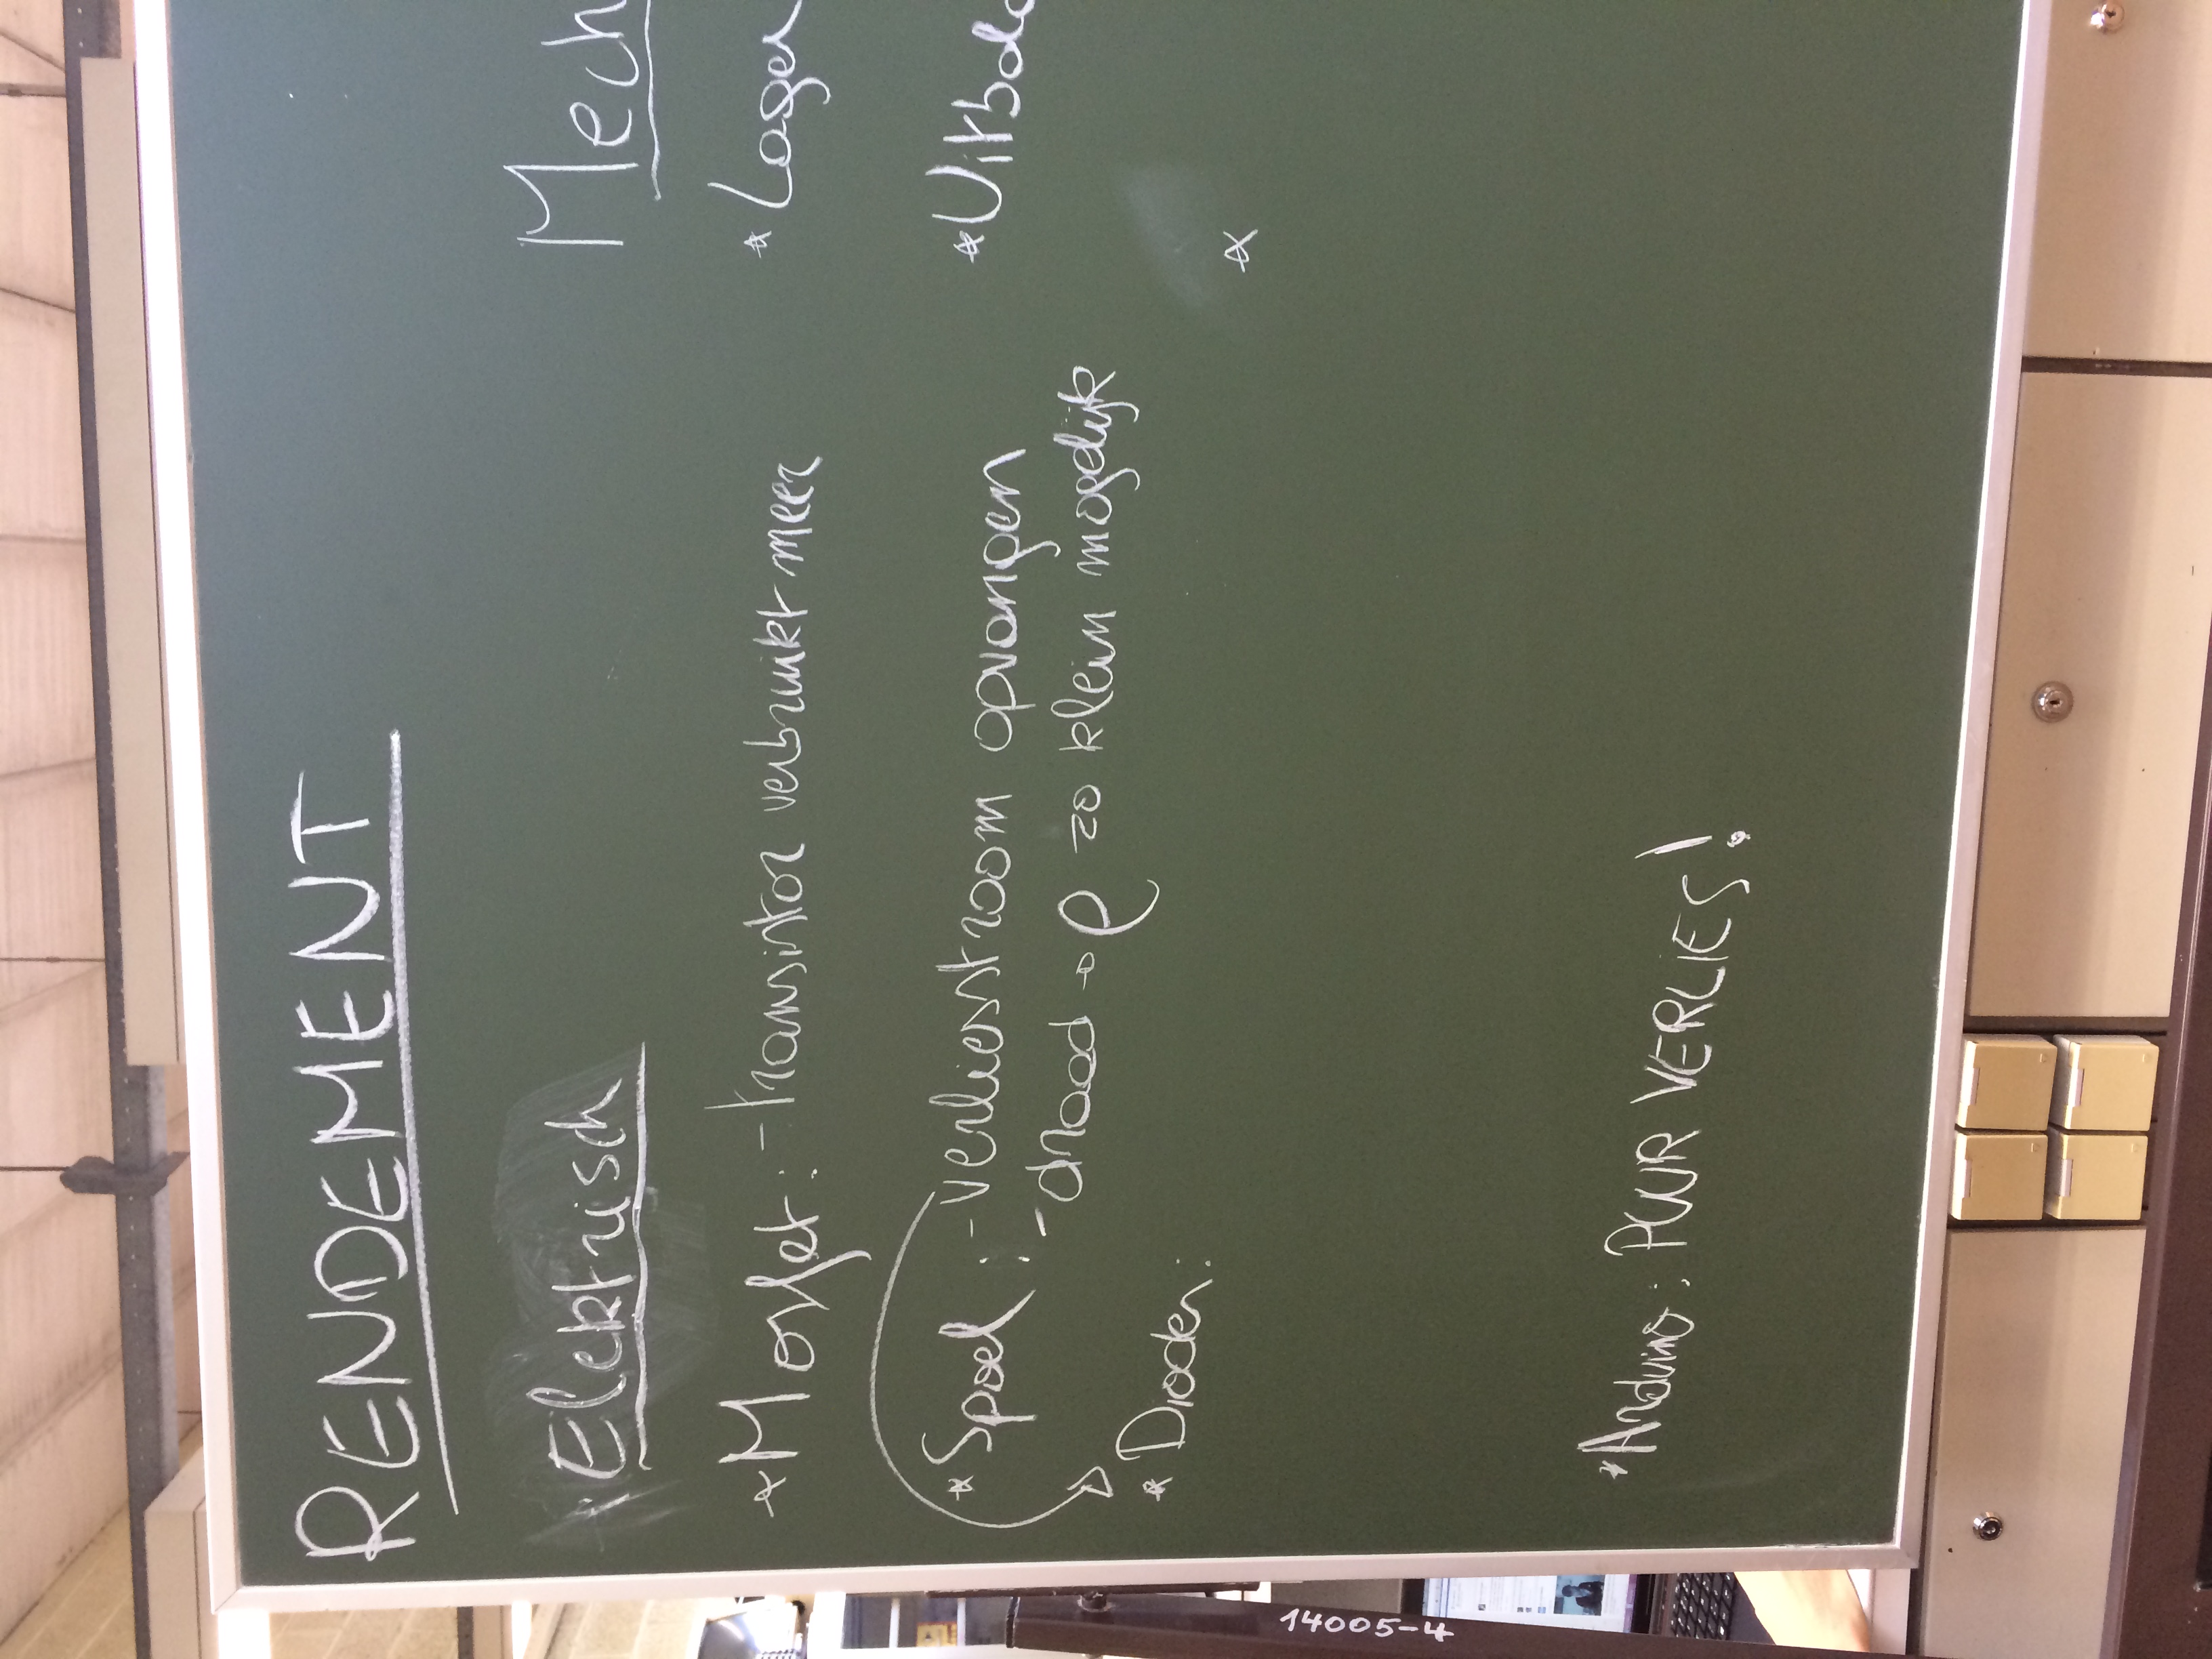 RENDEMENT
Elektrisch
* Mosfet: - transistor verbruikt meer
* Spoel: - verliesstroom opvangen
- draad → ρ zo klein mogelijk
* Dioden:
* Arduino: PUUR VERLIES!
Mech
* Lager
* Uitbala
*
14005-4